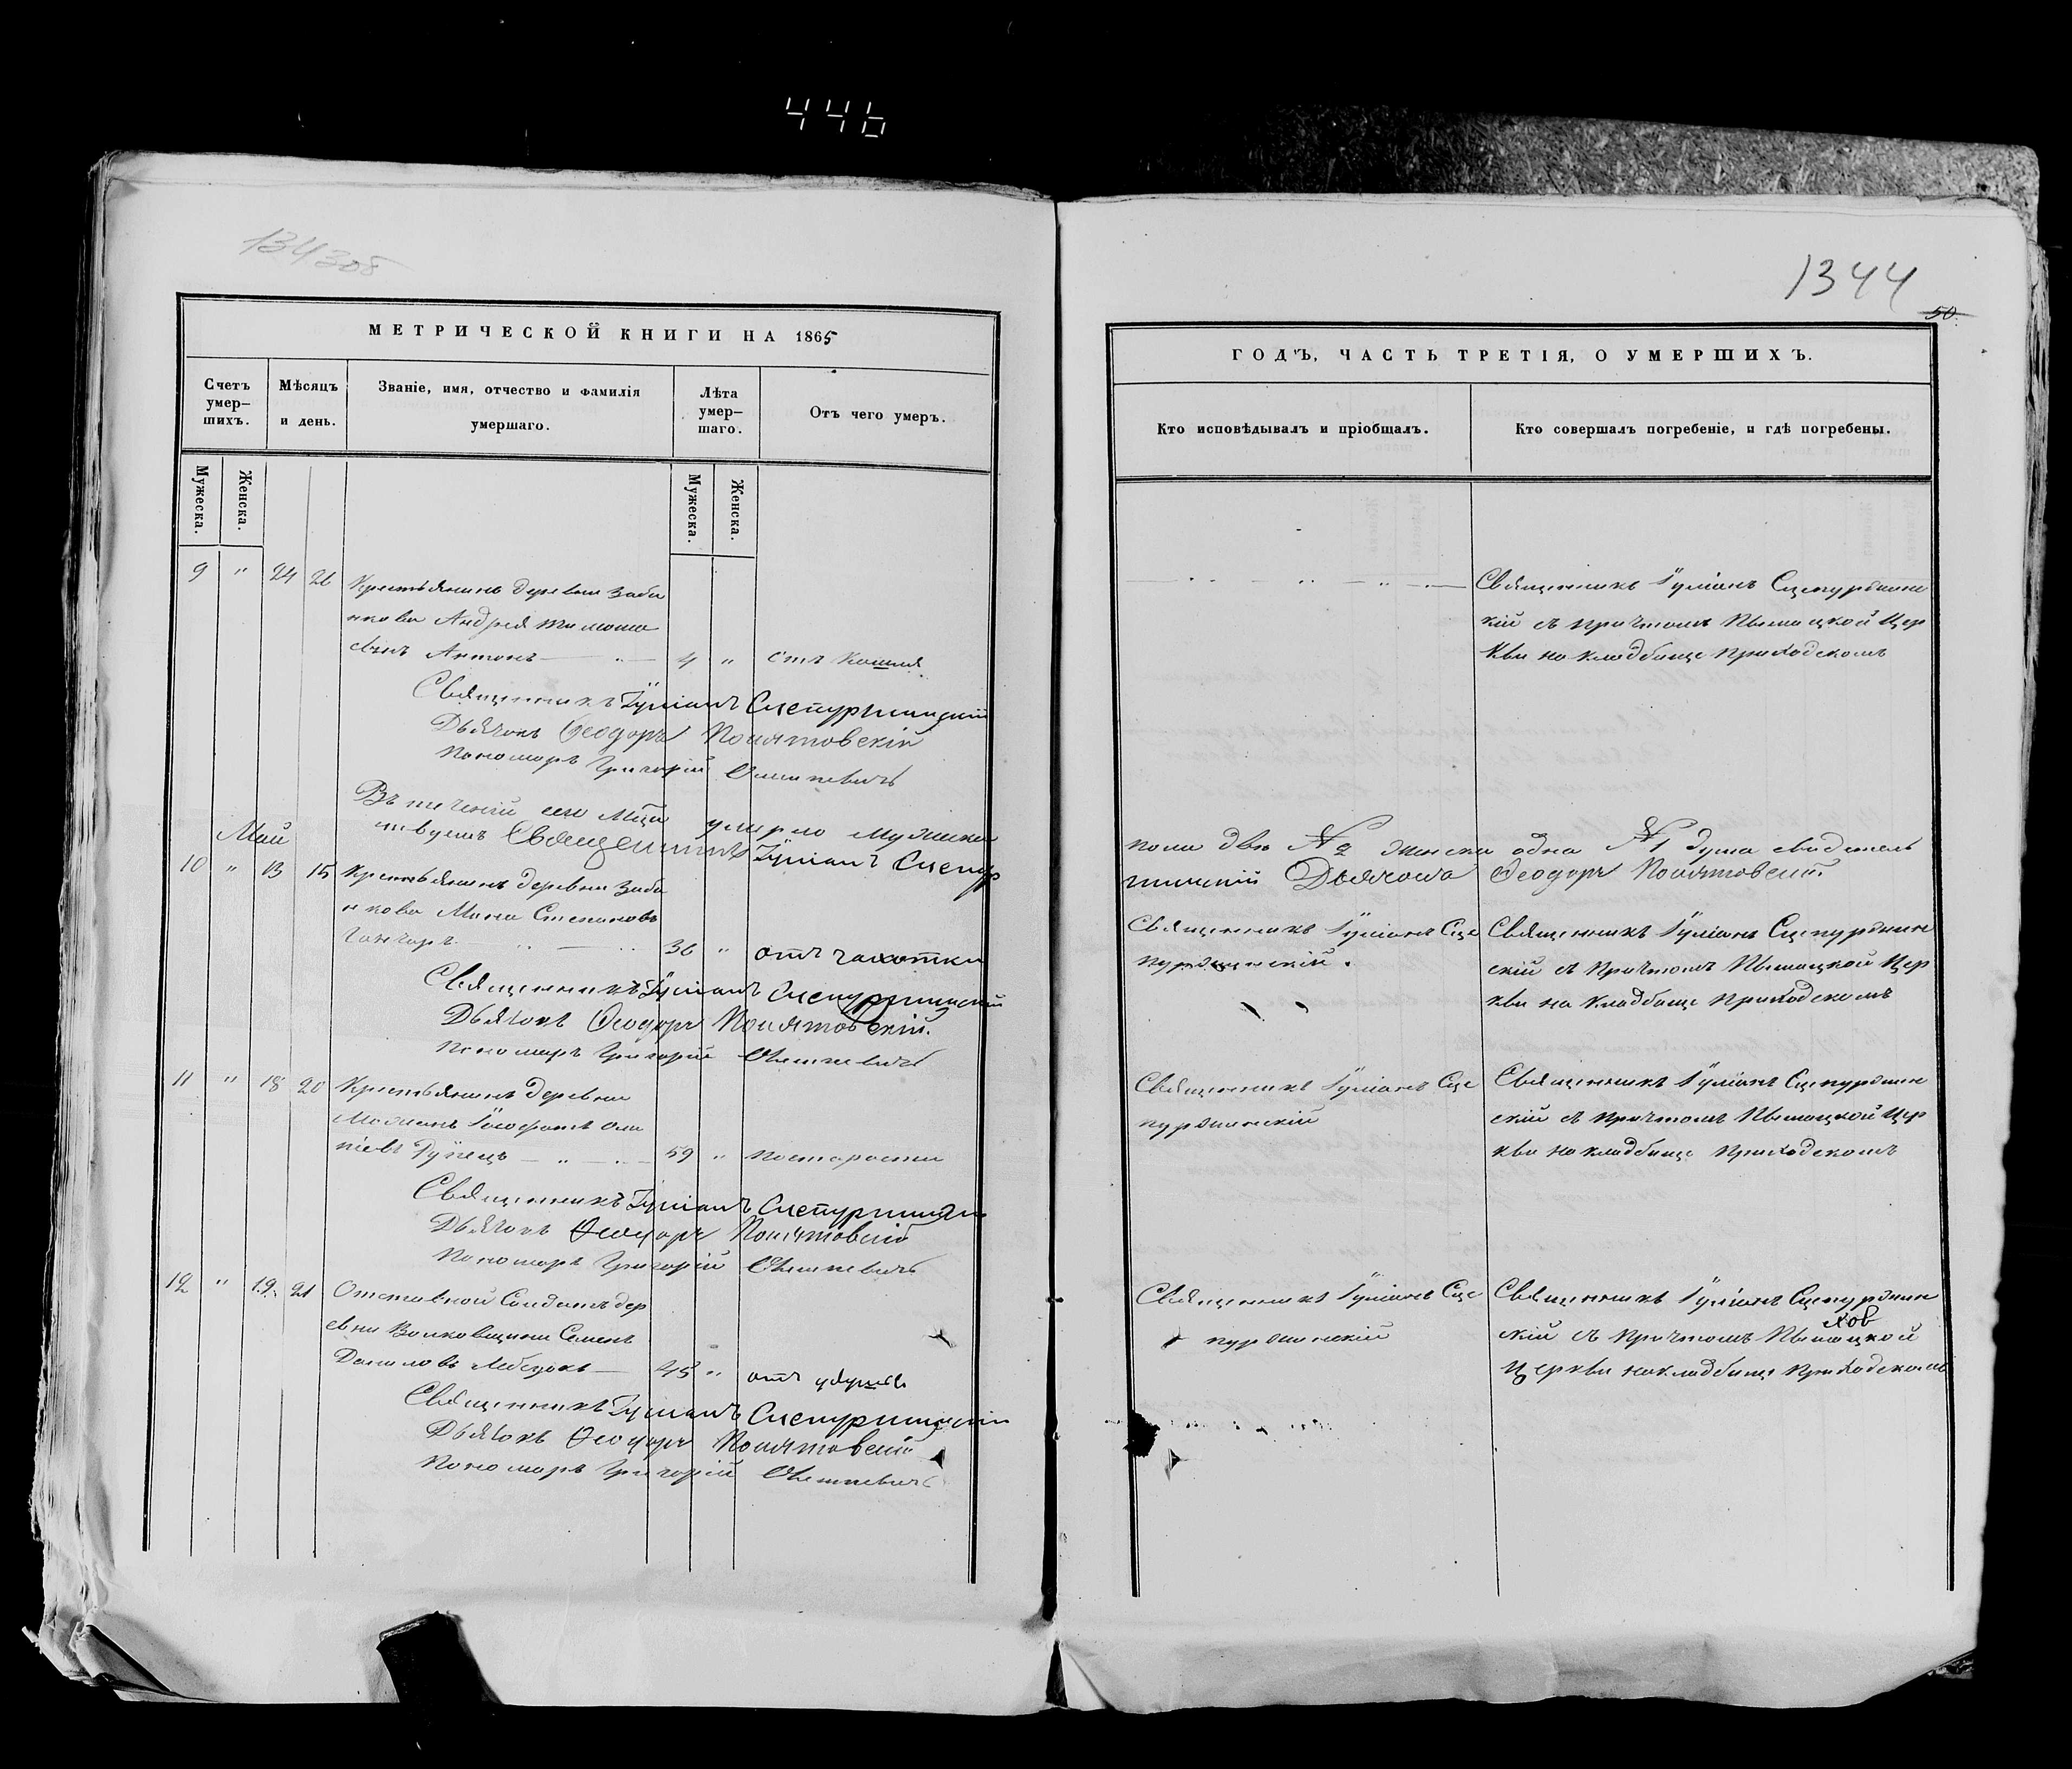 446
134 308
МЕТРИЧЕСКОЙ КНИГИ НА 1865
Счетъ умер-шихъ.
Мѣсяцъ и день.
Званіе, имя, отчество и фамилія умершаго.
Лѣта умер-шаго.
Отъ чего умеръ.
Мужеска.
Женска.
Мужеска.
Женска.
9 " 24 26 Крестьянинъ деревни Заба
нкова Андрея Тимоше
евъ сынъ Антонъ 4 " Отъ кашля
Священникъ Іуліанъ Сцепуржинскій
Дьячокъ Ѳеодоръ Понятовскій
Пономаръ Григорій
Въ теченіи сего Мца умерло мужеска
Май
Священникъ Іуліанъ Сцепур
10 " 13 15 Крестьянинъ деревни Заба
нкова Мина Степановъ
Гончаръ 36 " отъ чахотки
Священникъ Іуліанъ Сцепуржинскій
Дьячокъ Ѳеодоръ Понятовскій.
Пономаръ Григорій
11 " 18 20 Крестьянинъ деревни
59 " по старости
Священникъ Іуліанъ Сцепуржинскій
Дьячокъ Ѳеодоръ Понятовскій
Пономаръ Григорій
12 " 19 21 Отставной Солдатъ дер
евни Волковщины Семенъ
Даниловъ 45 " отъ удушья
Священникъ Іуліанъ Сцепуржинскій
Дьячокъ Ѳеодоръ Понятовскій
Пономаръ Григорій
1344
50.
ГОДЪ, ЧАСТЬ ТРЕТІЯ, О УМЕРШИХЪ.
Кто исповѣдывалъ и пріобщалъ.
Кто совершалъ погребеніе, и гдѣ погребены.
Священникъ Іуліанъ Сцепуржинс
кій съ причтомъ Цер
кви на кладбище приходскомъ
пола двѣ № 2 женска одна № 1 душа свидетель
жинскій Дьячокъ Ѳеодоръ Понятовскій
Священникъ Іуліанъ Сце
пуржинскій.
Священникъ Іуліанъ Сцепуржин
скій съ причтомъ Цер
кви на кладбище приходскомъ
Священникъ Іуліанъ Сце
пуржинскій
Священникъ Іуліанъ Сцепуржин
скій съ причтомъ Цер
кви на кладбище приходскомъ
Священникъ Іуліанъ Сце
пуржинскій
Священникъ Іуліанъ Сцепуржин
скій съ причтомъ
Церкви на кладбище приходскомъ